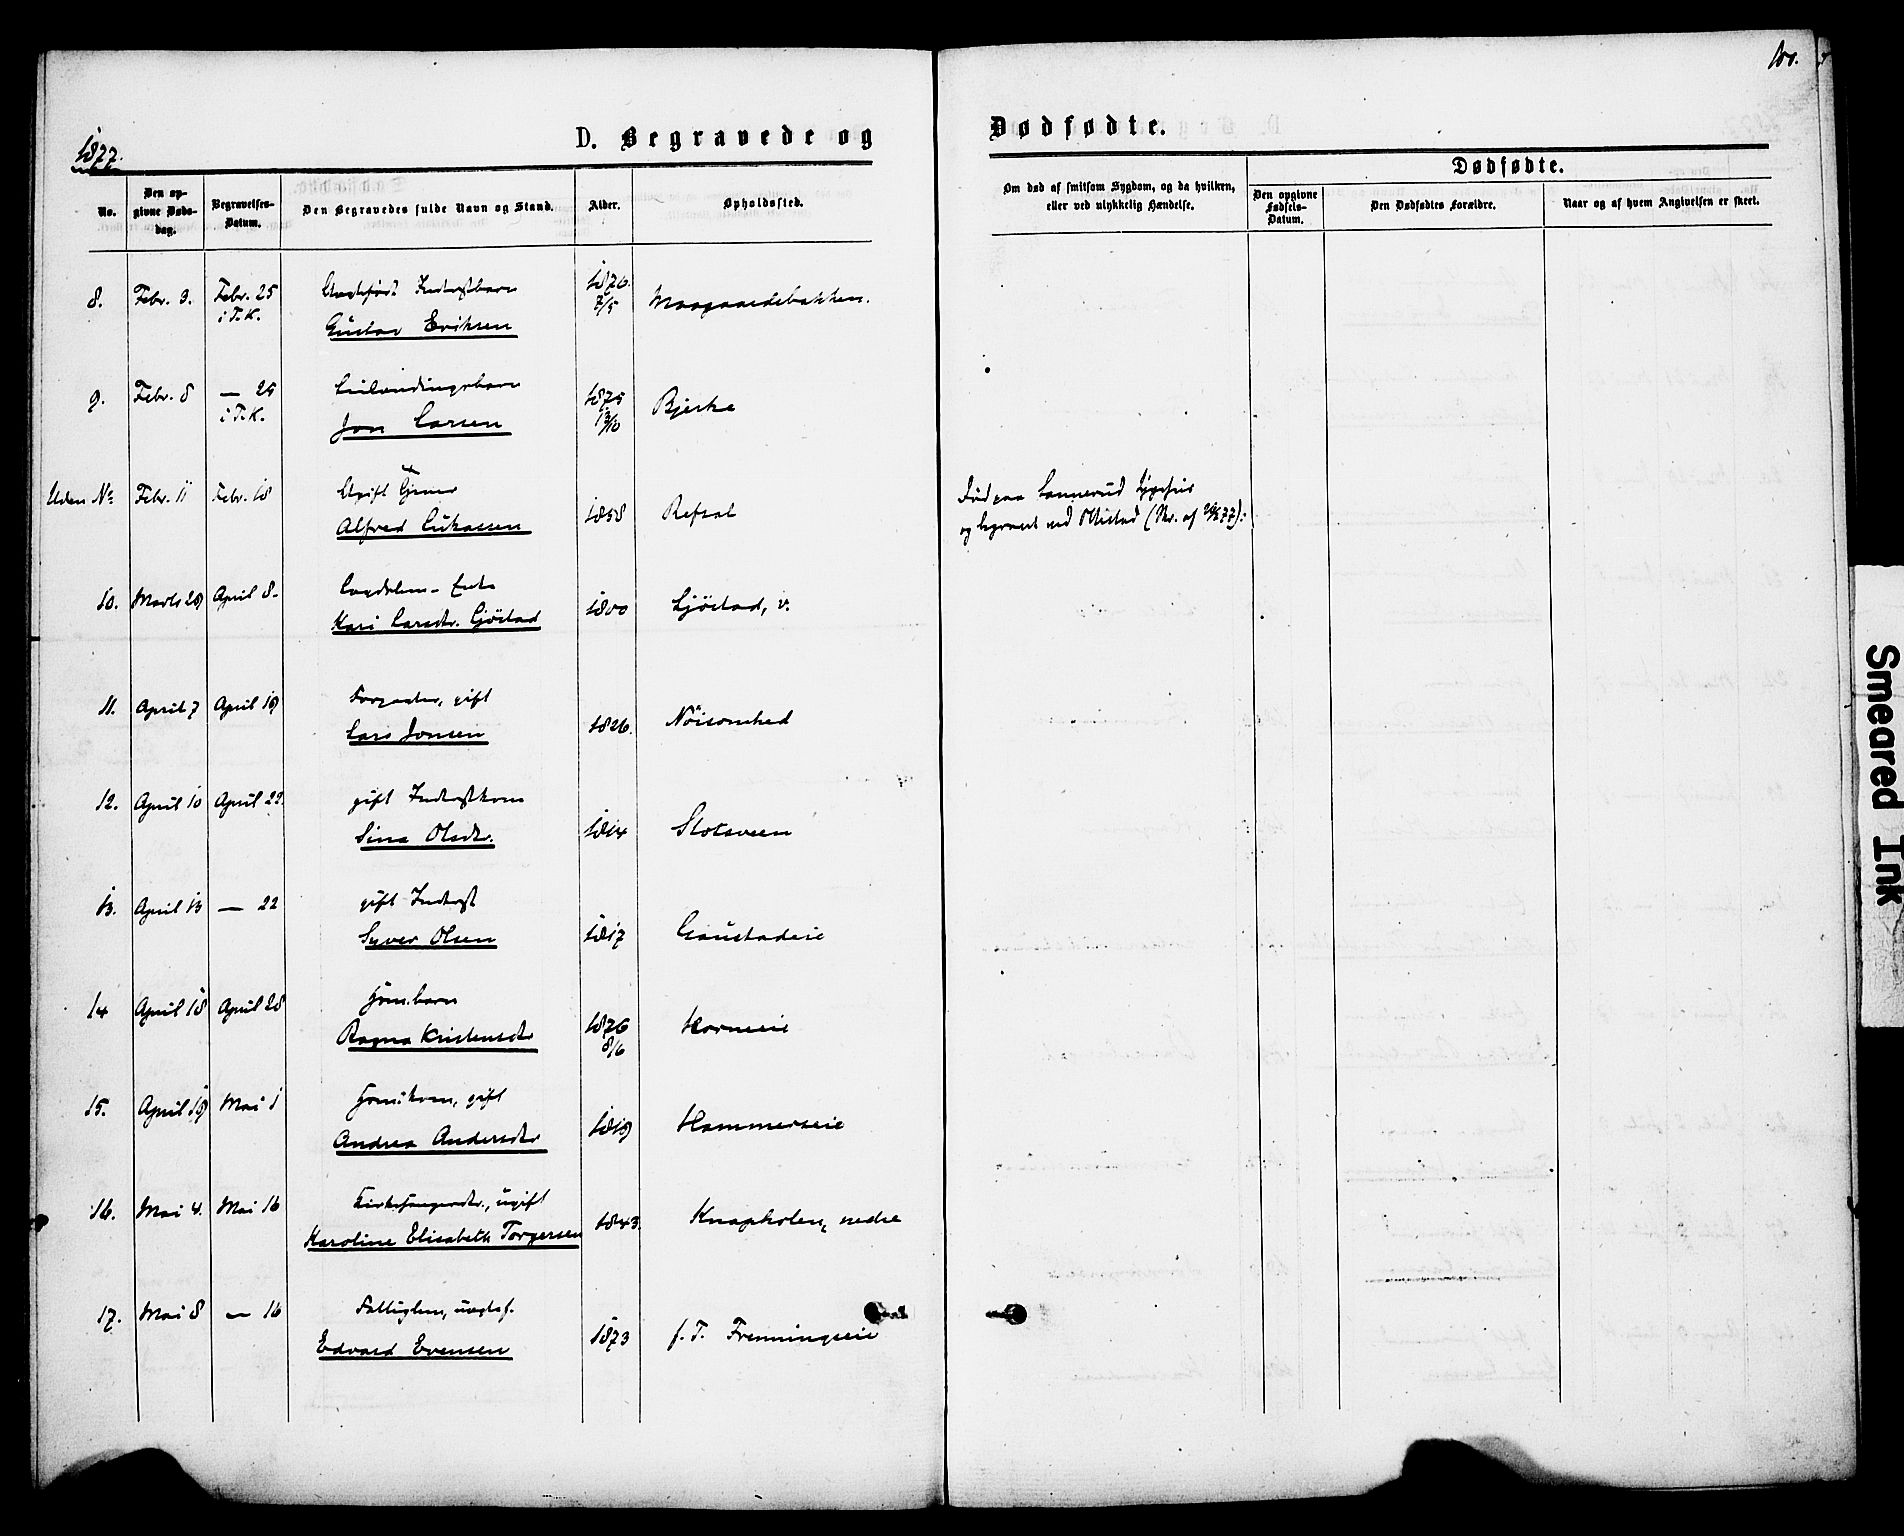 100.
1877.
D. Begravede og
Dødfødte.
No.
Den opgivne Dødsdag.
Begravelses-Datum.
Den Begravedes fulde Navn og Stand.
Alder.
Opholdssted.
Om død af smitsom Sygdom, og da hvilken, eller ved ulykkelig Hændelse.
Dødfødte.
Den opgivne Fødsels-Datum.
Den Dødfødtes Forældre.
Naar og af hvem Angivelsen er skeet.
8. Febr. 3. Febr. 25 Inderstbarn 1876
i T.K. Gustav Eriksen 7/5
9. Febr. 8 — 25 1875 Bjerke
i T.K. Jon Larsen 13/10
Uden No Febr. 11 Febr. 18 Ugift
Alfred Lukassen 1858 Refsal
Død paa Sygehus
og begravet ved
10. Marts 29 April 8. Enke
Kari Larsdtr. Gjöstad 1800 Gjöstad, v.
11. April 7 April 19 Forpagter, gift
Lars Jonsen 1826. Nöisomhed
12. April 10 April 22. gift Inderstkone
Sina Olsdtr. 1814 Slotsveen
13. April 13 — 22 gift Inderst
Syver Olsen 1817 Gaustadeie
14 April 18 April 28 Husm.barn
Ragna Kristensdtr 1876 Horneie
8/6
15. April 19 Mai 1 Husm.kone, gift
Andrea Andersdtr 1819 Hammerseie
16. Mai 4. Mai 16 Kirkesangerdtr., ugift
Karoline Elisabeth Torgersen 1843. Knapholen, nedre
17. Mai 8 — 16 Fattiglem, uægtef.
Edvard Evensen 1873 f. T. Frenningseie
Smeared Ink